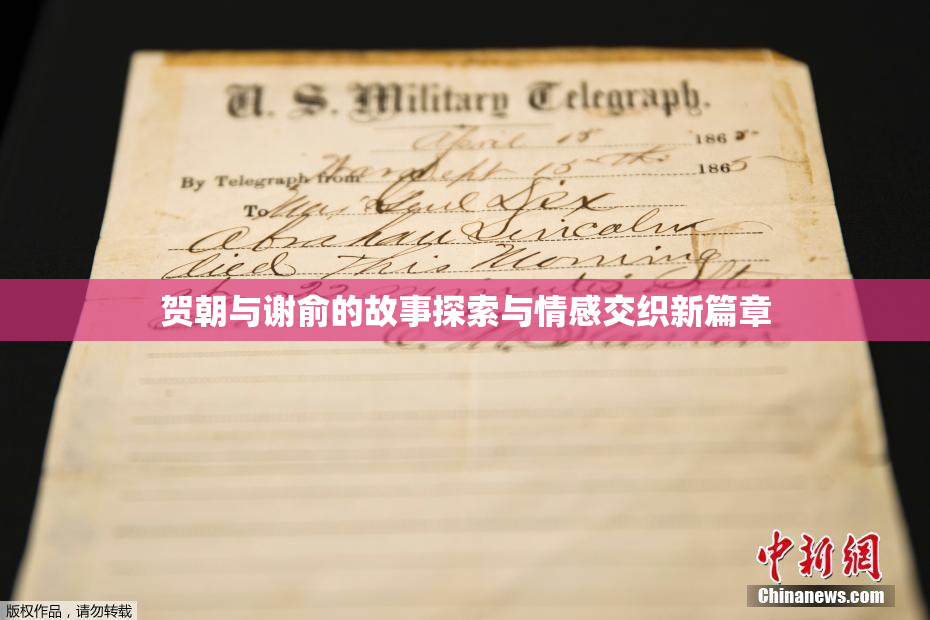 U. S. Military Telegraph.
April 15 1865
By Telegraph from War Dept 15th 1865
To Maj Genl Dix
Abraham Lincoln
died This Morning
22 minutes after
贺朝与谢俞的故事探索与情感交织新篇章
E. M. Stanton
中新网
Chinanews.com
版权作品，请勿转载